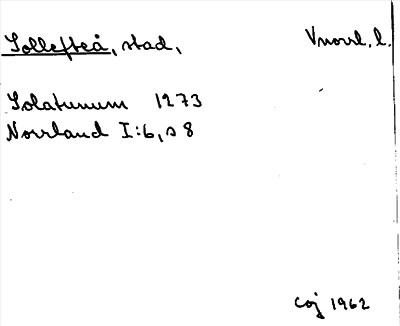 Sollefteå, stad,    Vnorrl. l.
Solatunum 1273
Norrland I:6, s 8
Coj 1962